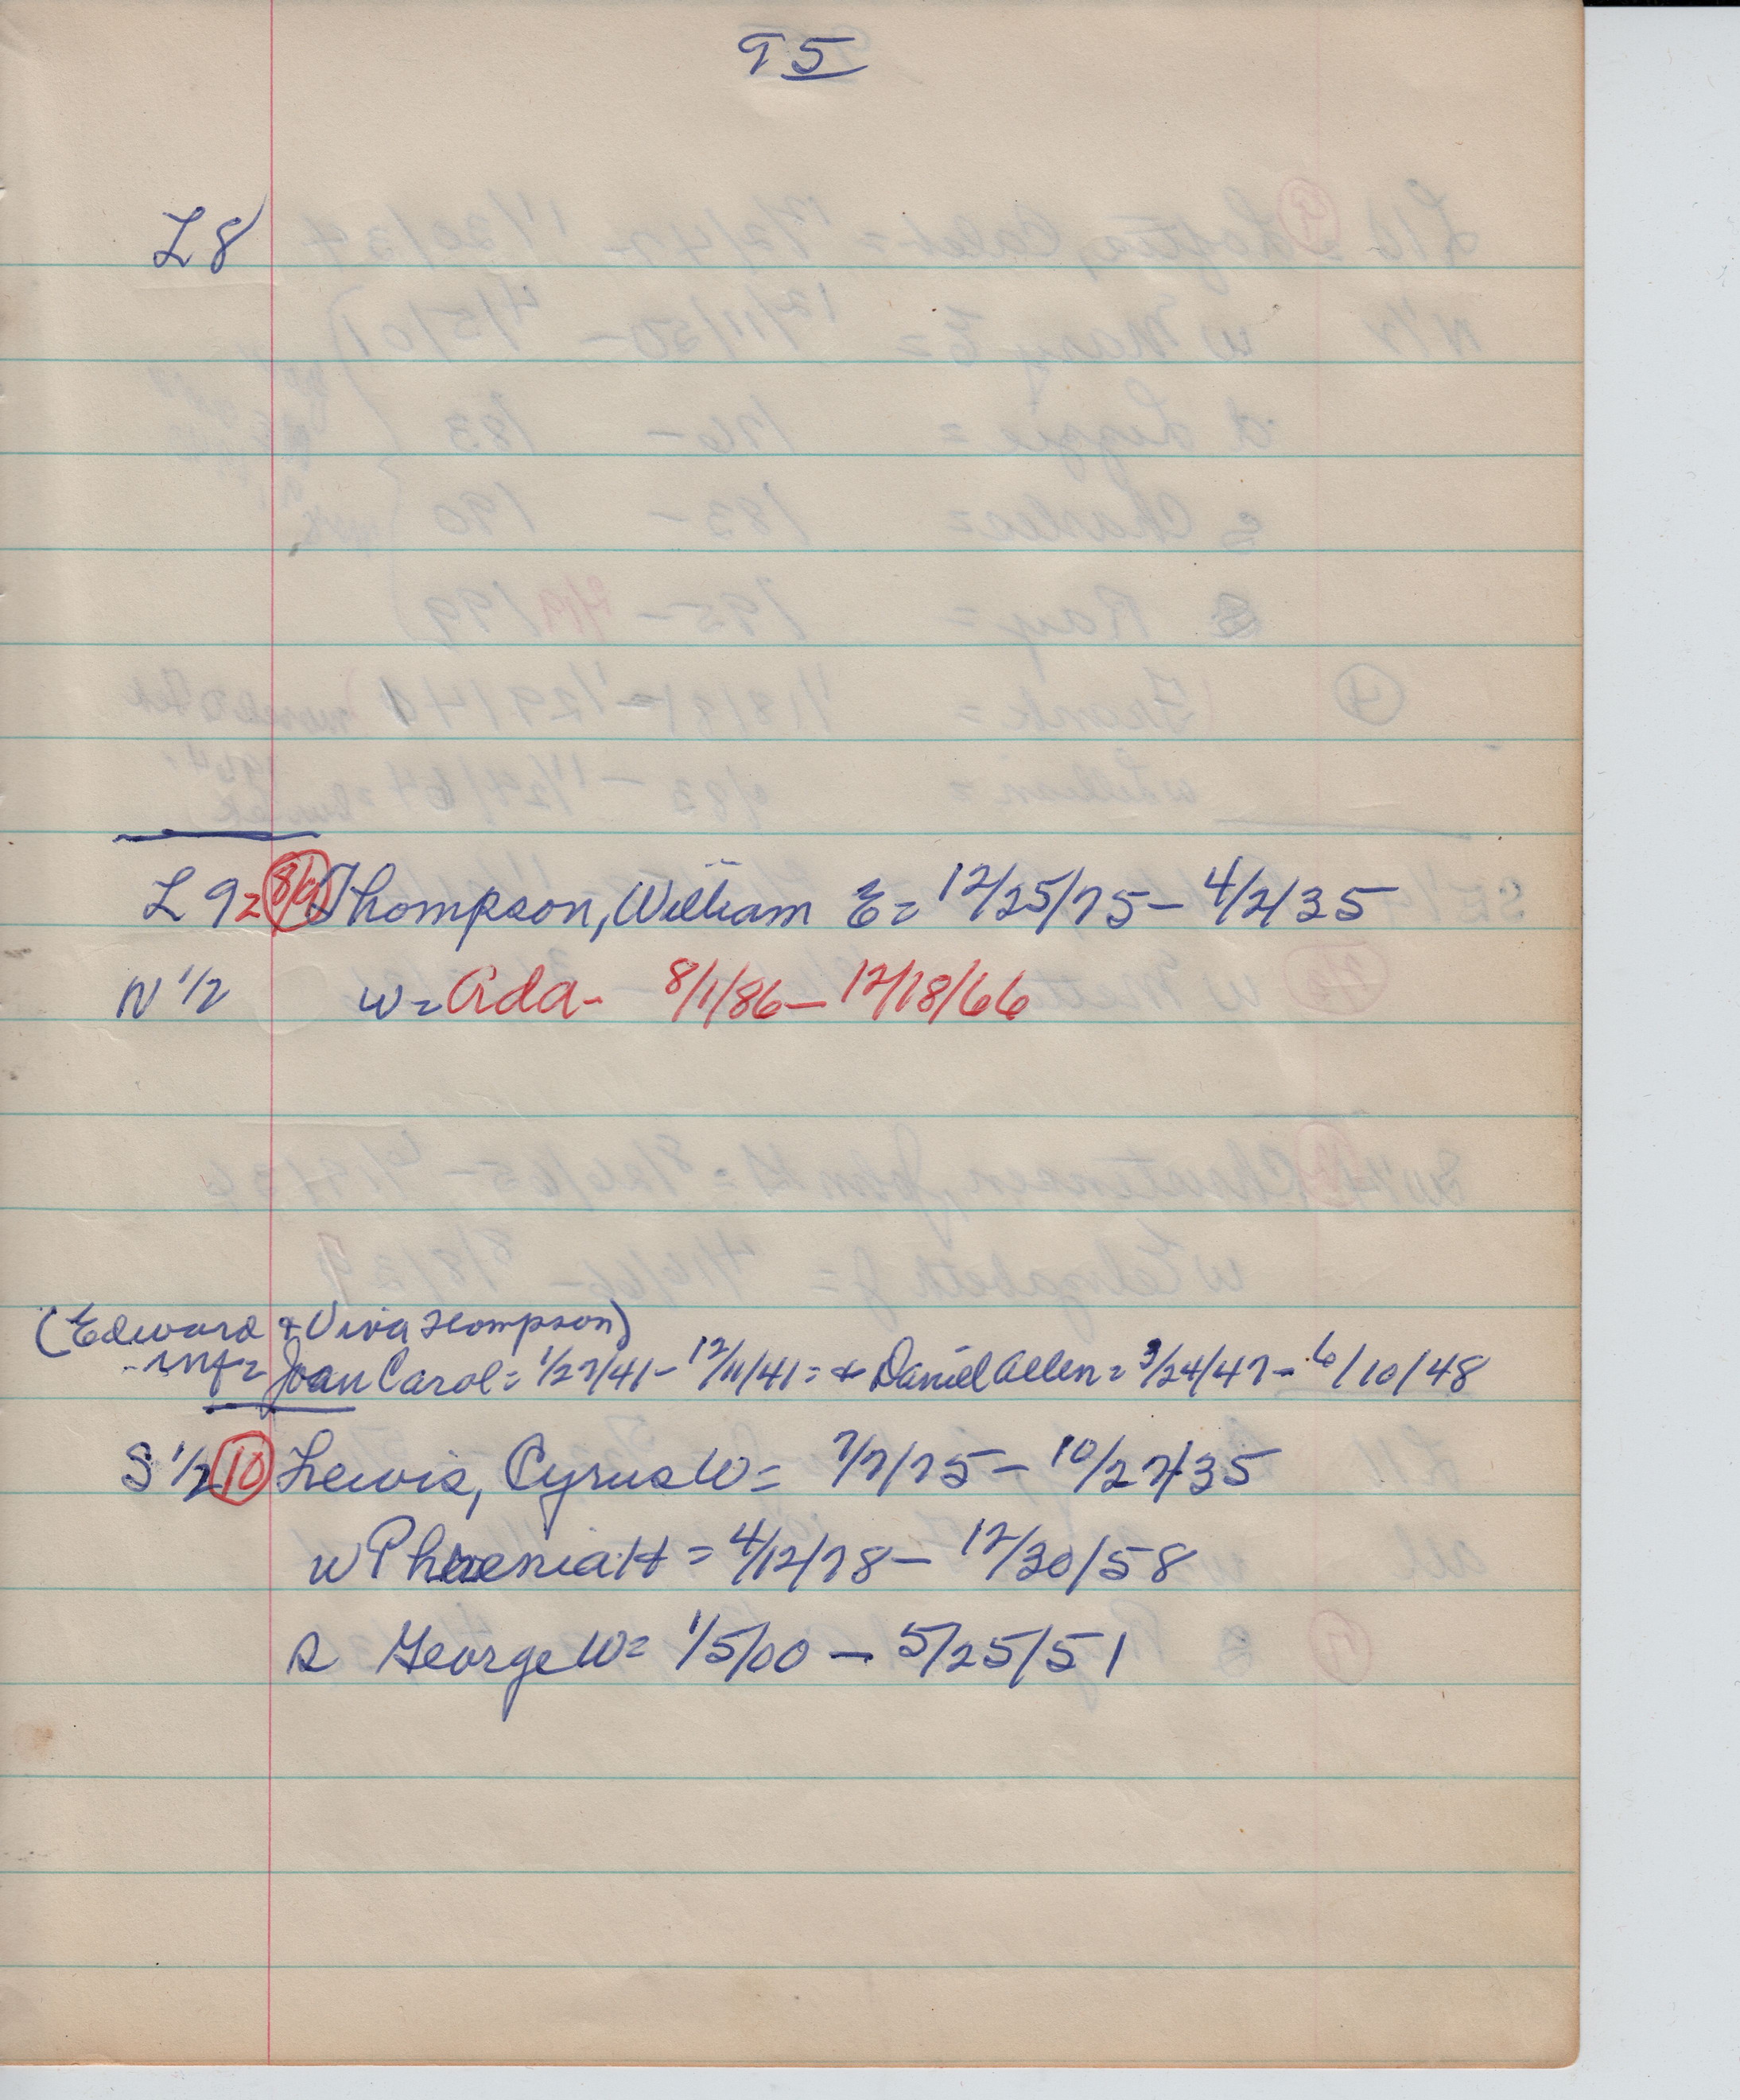 95
L8
L 9 = 8/10 Thompson, William E = 12/25/75 - 4/2/35
N 1/2 w = Ada - 8/1/86 - 12/18/66
(Edward + Viva Thompson)
- inf = Joan Carol = 1/27/41 - 12/11/41 = + Daniel Allen = 3/24/47 - 6/10/48
S 1/2 10 Lewis, Cyrus W = 7/7/75 - 10/27/35
w H = 4/12/78 - 12/30/58
s George W = 1/5/00 - 5/25/51